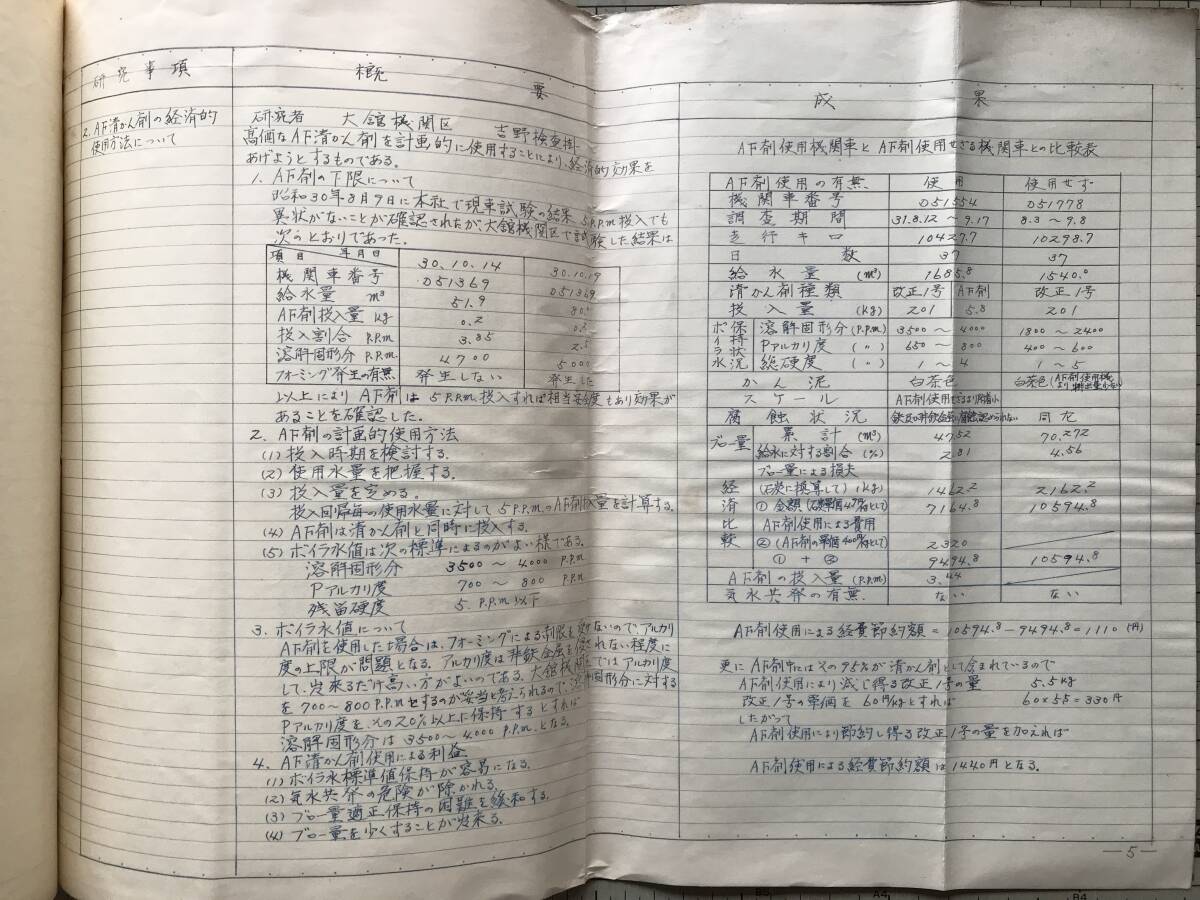 研究事項
概要
成果
2. AF清かん剤の経済的
使用方法について
研究者 大館機関区 吉野検査掛
高価なAF清かん剤を計画的に使用することにより、経済的効果を
あげようとするものである。
1. AF剤の下限について
昭和30年8月9日に本社で現車試験の結果 5 P.P.m 投入でも
異状がないことが確認されたが、大館機関区で試験した結果は
次のとおりであった。
項目 年月日 30.10.14 30.10.19
機関車番号 D51369 D51369
給水量 m³ 51.9
AF剤投入量 kg 0.2
投入割合 P.P.m. 3.85 2.5
溶解固形分 P.P.m. 4700 5000
フォーミング発生の有無 発生しない 発生した
以上によりAF剤は 5 P.P.m. 投入すれば相当安全度もあり効果が
あることを確認した。
2. AF剤の計画的使用方法
(1) 投入時期を検討する。
(2) 使用水量を把握する。
(3) 投入量を定める。
投入回帰毎の使用水量に対して 5 P.P.m. のAF剤投入量を計算する。
(4) AF剤は清かん剤と同時に投入する。
(5) ボイラ水値は次の標準によるのがよい様である。
溶解固形分 3500 〜 4000 P.P.m
Pアルカリ度 700 〜 800 P.P.m
残留硬度 5. P.P.m 以下
3. ボイラ水値について
AF剤を使用した場合は、フォーミングによる制限を受けないので、アルカリ
度の上限が問題となる。アルカリ度は非鉄金属を侵されない程度に
して、出来るだけ高い方がよいのである。大館機関区ではアルカリ度
を700〜800 P.P.mとするのが妥当と考えられるので、溶解固形分に対する
Pアルカリ度を、その20%以上に保持するとすれば
溶解固形分は 3500〜4000 P.P.m. となる。
4. AF清かん剤使用による利益
(1) ボイラ水標準値保持が容易になる。
(2) 気水共発の危険が除かれる。
(3) ブロー量適正保持の困難を緩和する。
(4) ブロー量を少くすることが出来る。
AF剤使用機関車とAF剤使用せざる機関車との比較表
AF剤使用の有無. 使用 使用せず
機関車番号 D51554 D51778
調査期間 31.8.12 〜 9.17 8.3 〜 9.8
走行キロ 10427.7 10298.7
日数 37 37
給水量 (m³) 1685.8 1540.0
清かん剤種類 改正1号 AF剤 改正1号
投入量 (kg) 201 5.8 201
ボイラ水 保持状況 溶解固形分 (P.P.m) 3500 〜 4000 1800 〜 2400
Pアルカリ度 (〃) 650 〜 800 400 〜 600
総硬度 (〃) 1 〜 4 1 〜 5
かん泥 白茶色 白茶色
スケール
腐蝕状況 同左
ブロー量 累計 (m³) 47.52 70.272
給水に対する割合 (%) 2.81 4.56
経済比較 ブロー量による損失
(石炭に換算して) (kg) 1462.2 2162.2
① 金額 7164.8 10594.8
AF剤使用による費用
② (AF剤の単価400円/kgとして) 2320
① + ② 9494.8 10594.8
AF剤の投入量 (P.P.m) 3.44
気水共発の有無. ない ない
AF剤使用による経費節約額 = 10594.8 − 9494.8 = 1110 (円)
更にAF剤中にはその95%が清かん剤として含まれているので
AF剤使用により減じ得る改正1号の量 5.5kg
改正1号の単価を 60円/kgとすれば 60×5.5=330円
したがって
AF剤使用により節約し得る改正1号の量を加えれば
AF剤使用による経費節約額は1440円となる。
—5—